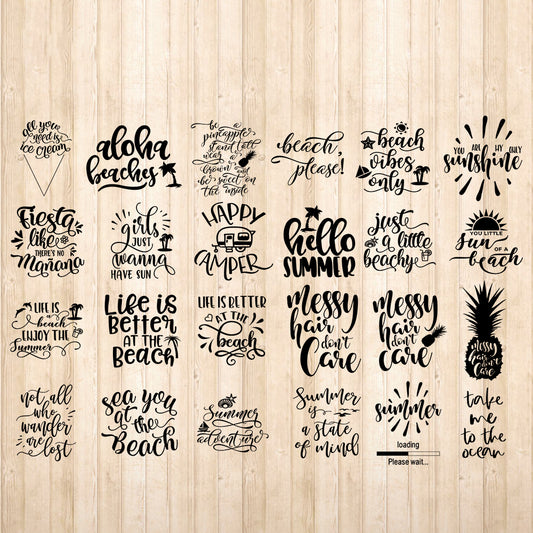 all you
need is
ice cream
aloha
beaches
be a
pineapple
stand tall
wear a
crown and
be sweet on
the inside
beach,
please!
beach
vibes
only
YOU ARE MY ONLY
sunshine
Fiesta
like
THERE'S NO
Mañana
girls
JUST
wanna
HAVE SUN
HAPPY
CAMPER
hello
SUMMER
just
a little
beachy
YOU LITTLE
Sun
OF A
beach
LIFE IS
a
beach
ENJOY THE
Summer
Life is
Better
AT THE
Beach
LIFE IS BETTER
AT THE
beach
Messy
hair
don't
Care
Messy
hair
don't
care
Messy
hair
don't
Care
not all
who
wander
are lost
sea you
at
the
Beach
Summer
adventure
Summer
is
a state
of mind
summer
loading
Please wait...
take
me
to the
ocean